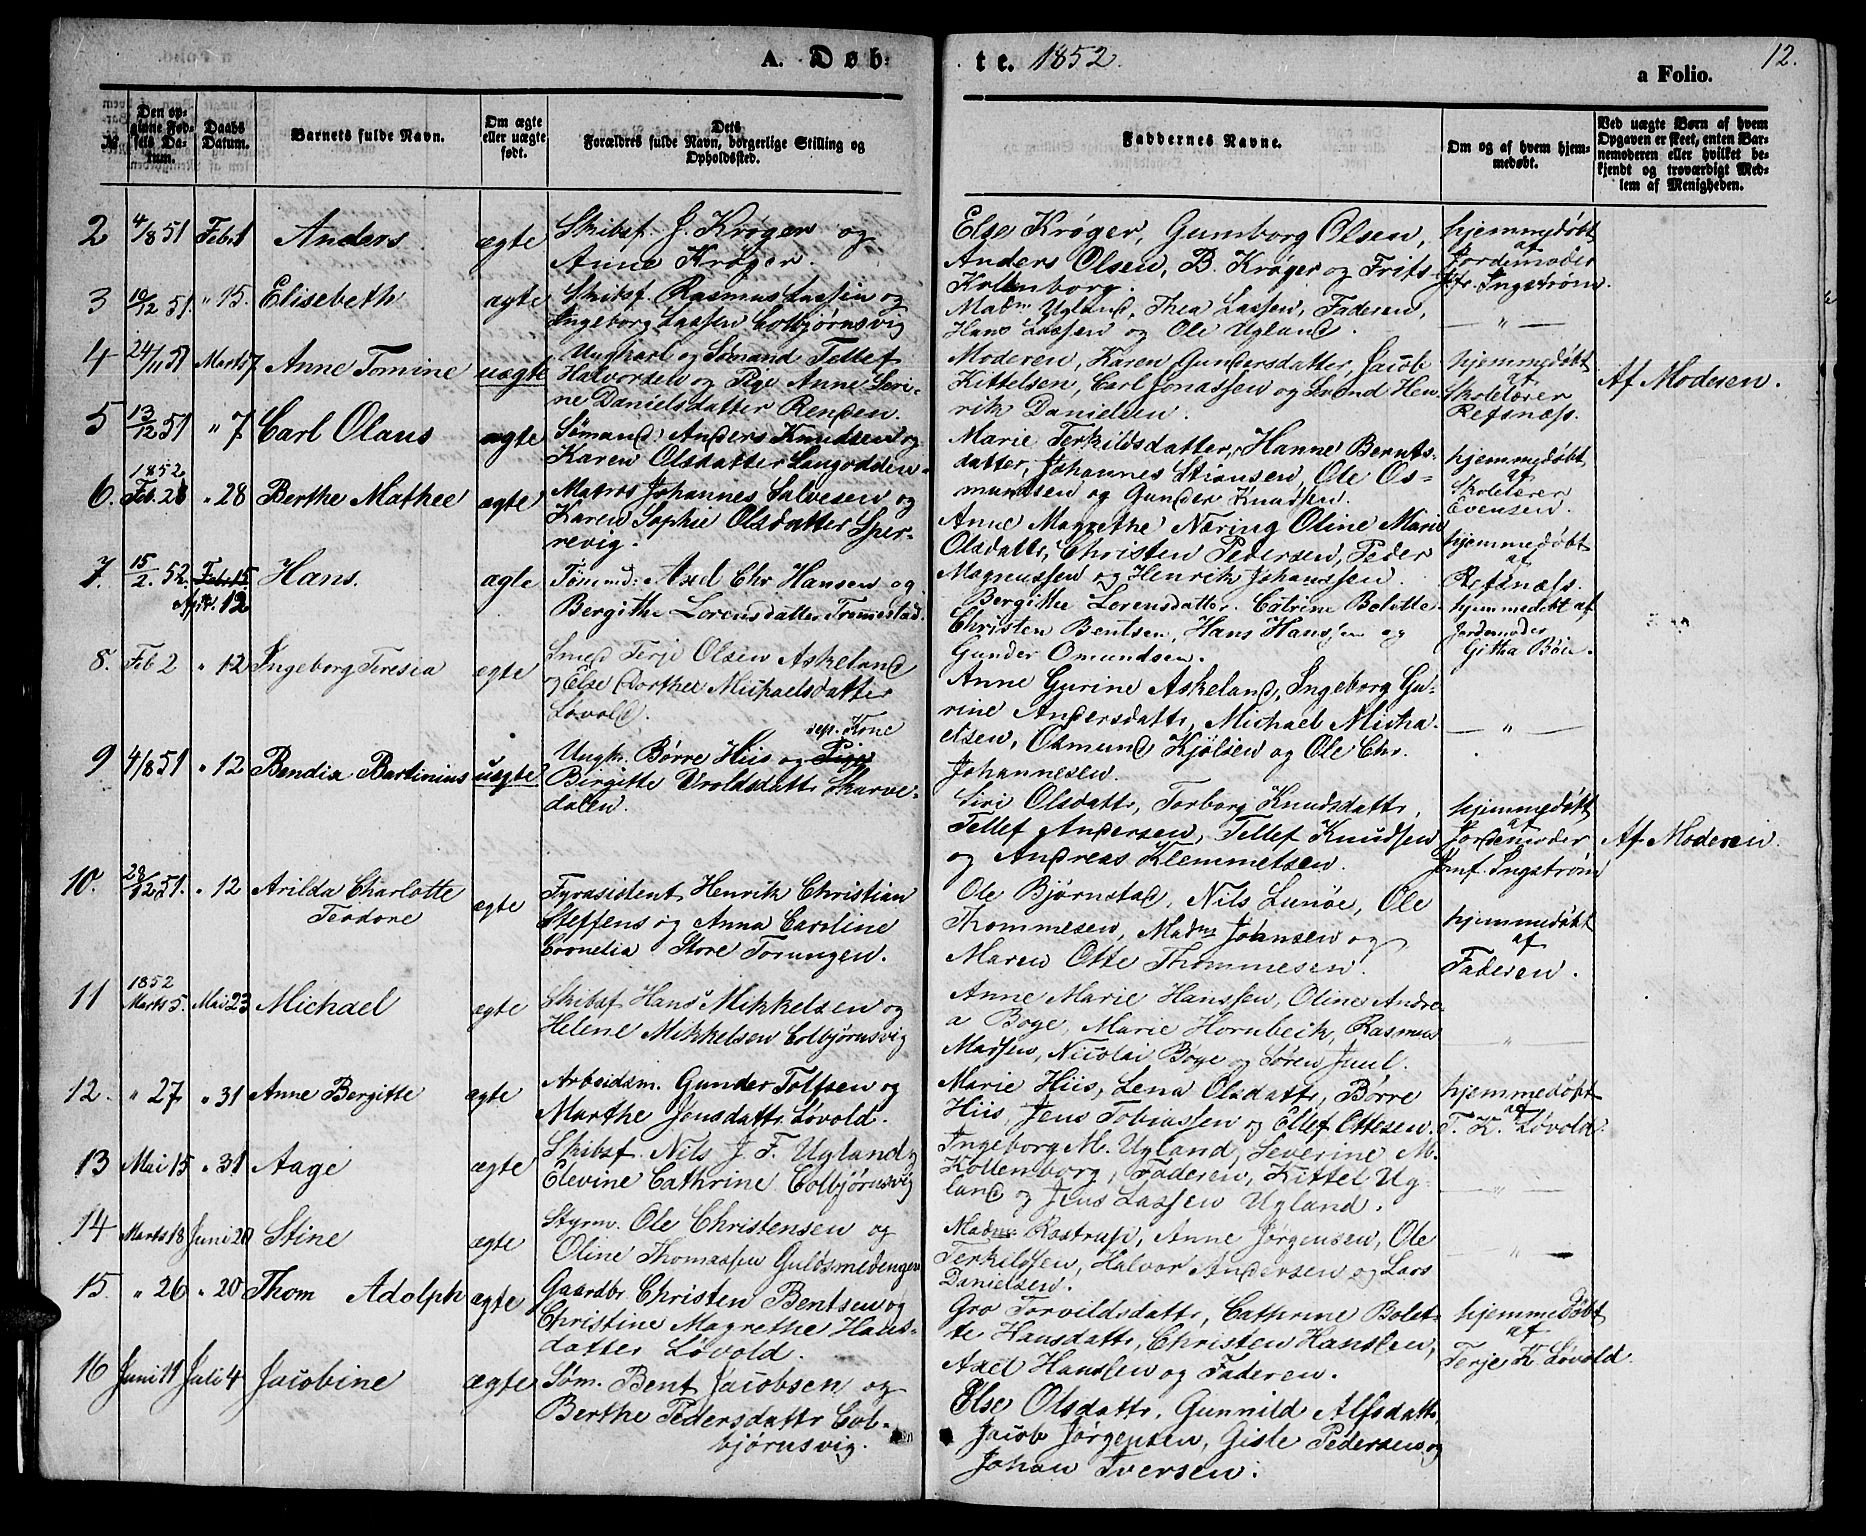 A. Døb-
te. 1852.
12.
a Folio.
№
Den op-
givne Fød-
sels Da-
tum.
Daabs
Datum.
Barnets fulde Navn.
Om ægte
eller uægte
født.
Dets
Forældres fulde Navn, borgerlige Stilling og
Opholdssted.
Faddernes Navne.
Om og af hvem hjem-
medøbt.
Ved uægte Børn af hvem
Opgaven er skeet, enten Bar-
nemoderen eller hvilket be-
kjendt og troværdigt Med-
lem af Menigheden.
2 4/8 51 Febr 1 Anders ægte
Skibsf. J. Krøger og
Anne Krøger.
Else Krøger, Gunborg Olsen,
Anders Olsen, B. Krøger og Frits
Kollenborg.
hjemmedøbt
af
Jordemoder
Jfr. Ingstrøm.
3 10/12 51. " 15. Elisebeth ægte
Skibsf. Rasmus Lassen og
Ingeborg Lassen Colbjørnsvig
Madm Ugland, Thea Lassen, Faderen,
Hans Lassen og Ole Ugland.
— " —
4 24/11 51 Marts 7 Anne Tomine uægte
Ungkarl og Sømand Tellef
Halvorsen og Pige Anne Seri-
ne Danielsdatter Renden.
Moderen, Karen Gundersdatter, Jacob
Kittelsen, Carl Jonassen og Svend Hen-
rik Danielsen.
hjemmedøbt
af
Skolelærer
Refsnæs.
Af Moderen.
5 13/12 51 " 7 Carl Olaus ægte
Sømand Anders Knudsen og
Karen Olsdatter Langodden.
Marie Terkildsdatter, Hanne Bernts-
datter, Johannes Stiansen, Ole Os-
mundsen og Gunder Knudsen.
hjemmedøbt
af
Skolelærer
Evensen.
1852
6. Feb. 28 " 28 Berthe Mathee ægte
Matros Johannes Salvesen og
Karen Sophie Olsdatter Sper-
revig.
Anne Magrethe Næring Oline Marie
Olsdattr, Christen Pedersen, Peder
Magnussen og Henrik Johanssen.
hjemmedøbt
af
Refsnæs.
7. 15/2. 52. Febr. 15 Hans. ægte
April 12
Tømmd: Axel Chr Hansen og
Bergithe Lorensdatter Trommestad.
Bergithe Lorensdatter. Catrine Bolette.
Christen Bentsen, Hans Hanssen og
Gunder Omundsen.
hjemmedøbt af
Jordemoder
Githa Bøie.
8. Feb 2 " 12 Ingeborg Teresia ægte
Smed Terje Olsen Askeland
og Else Dorthee Michaelsdatter
Løvold.
Anne Gurine Askeland, Ingeborg Gu-
rine Andersdattr, Michael Micha-
elsen, Osmund Kjølsen og Ole Chr.
Johannesen.
— " —
9 4/8 51 " 12 Bendix Bartinius uægte
sep. Kone
Ungk. Børre Hiis og Pige
Birgitte Uroldsdattr Skarve-
dalen.
Siri Olsdattr, Torborg Knudsdattr,
Tellef Andersen, Tellef Knudsen
og Andreas Klemmetsen.
hjemmedøbt
af
Jordemoder
Jomf. Ingstrøm
Af Moderen.
10. 28/12 51. " 12 Arilda Charlotte
Terdore
ægte
Fyrasistent Henrik Christian
Steffens og Anna Caroline
Cornelia Store Torungen.
Ole Bjørnstad, Nils Lunøe, Ole
Thommesen, Madm Johnsen og
Maren Otte Thommesen.
hjemmedøbt
af
Faderen.
1852
11 Marts 5. Mai 23 Michael ægte
Skibsf Hans Mikkelsen og
Helene Mikkelsen Colbjørnsvig
Anne Marie Hanssen, Oline Andre-
a Boge, Marie Hornbeck, Rasmus
Madsen, Nicolai Bøge og Søren Juul.
— " —
12. " 27 " 31 Anne Bergitte ægte
Arbeidsm. Gunder Tolfsen og
Marthe Jensdattr Løvold.
Marie Hiis, Lena Olsdattr, Børre
Hiis, Jens Tobiassen og Ellef Ottesen.
hjemmedøbt
af
T. K. Løvold.
13 Mai 15 " 31 Aage ægte
Skibsf Nils J. F. Ugland og
Elevine Cathrine Colbjørnsvig
Ingeborg M. Ugland, Severine M.
Kollenborg, Faderen, Kittel Ug-
land og Jens Lassen Ugland.
— " —
14 Marts 18 Juni 20 Stine ægte
Styrm. Ole Christensen og
Oline Thomassen Guldsmedengen
Madm Rostrup, Anne Jørgensen, Ole
Terkildsen, Halvor Andersen og Lars
Danielsen.
— " —
15. " 26 " 20 Thom Adolph ægte
Gaardbr Christen Bentsen og
Christine Magrethe Hans-
datter Løvold.
Gro Torvildsdattr, Cathrine Bolet-
te Hansdattr, Christen Hanssen,
Axel Hanssen og Faderen.
hjemmedøbt
af
Terje K Løvold.
16 Juni 11 Juli 4 Jacobine ægte
Søm. Bent Jacobsen og
Berthe Pedersdattr Col-
bjørnsvig.
Else Olsdattr, Gunnild Alfsdattr
Jacob Jørgensen, Gisle Pedersen og
Johan Iversen.